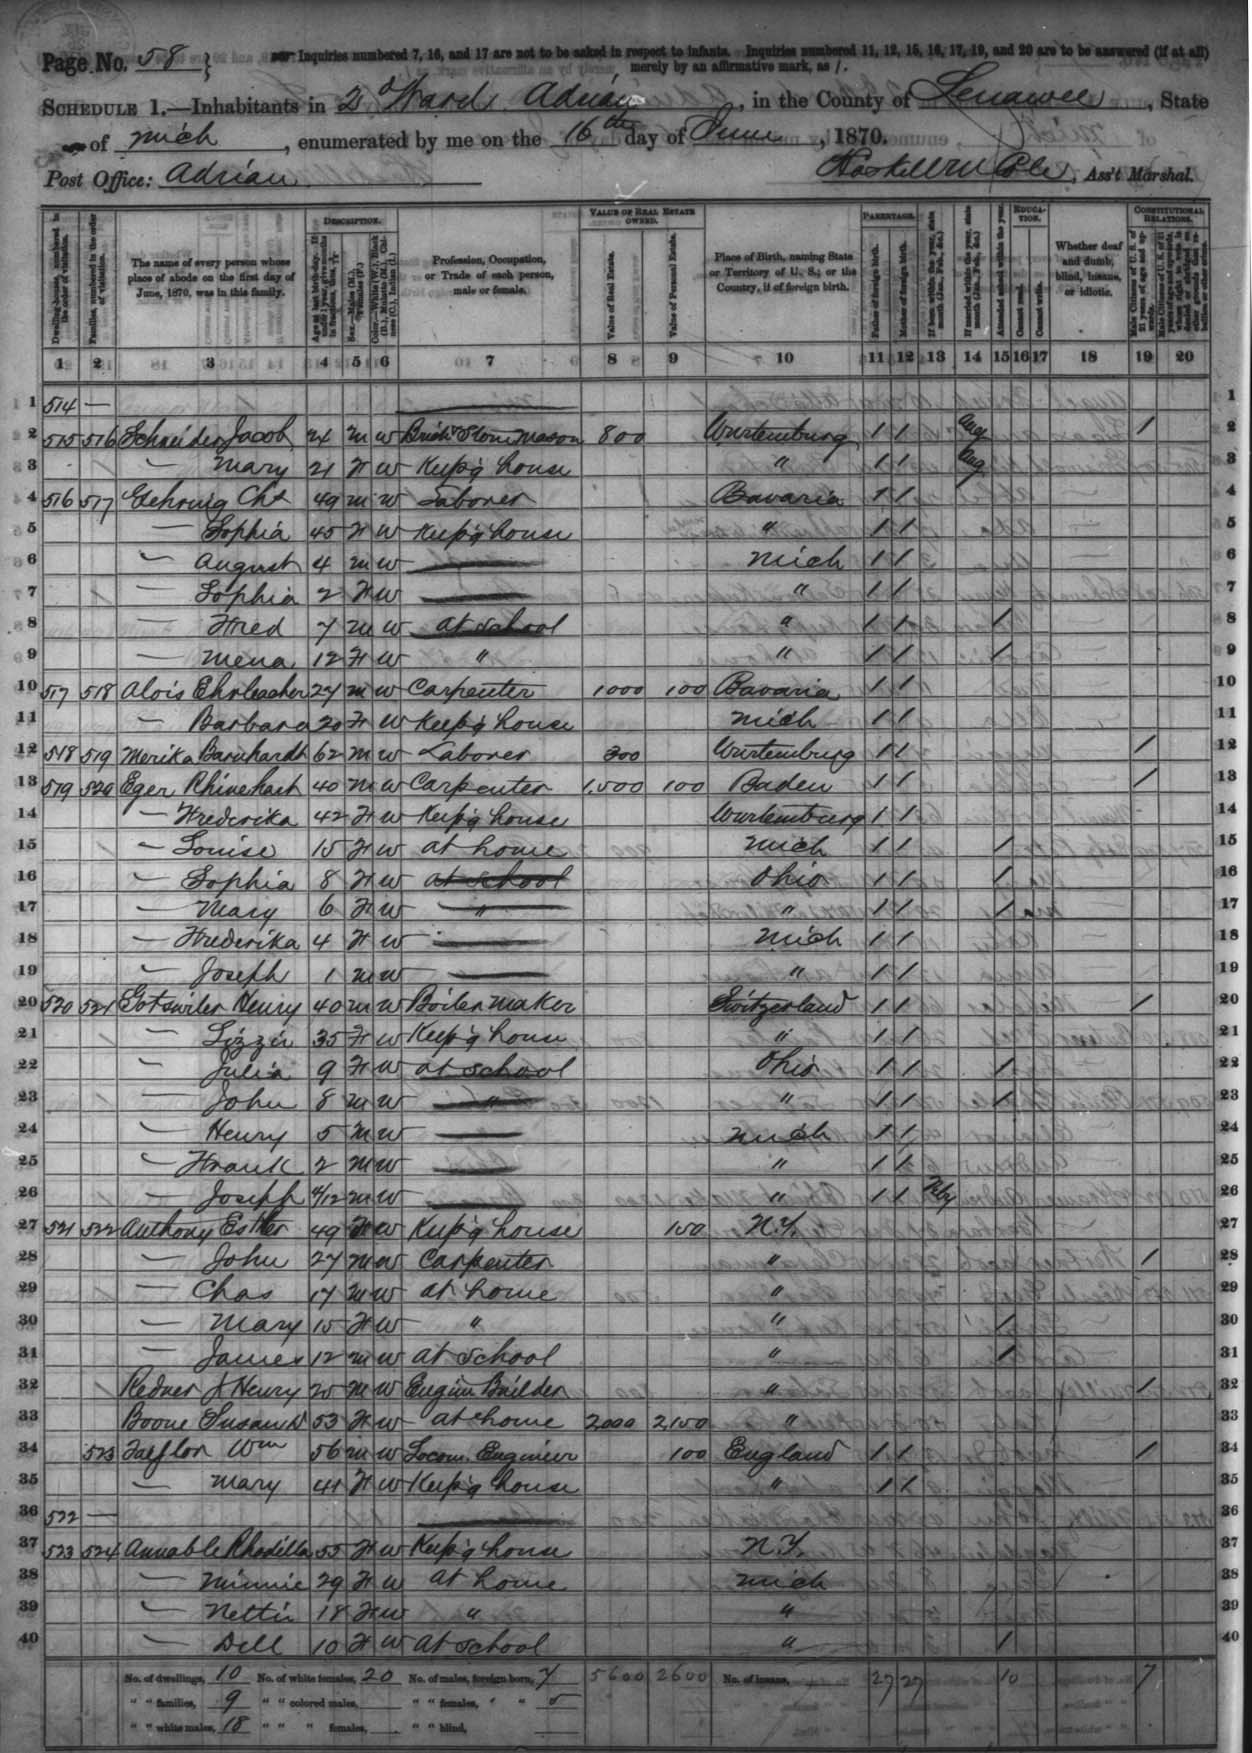 Page No. 58 } Inquiries numbered 7, 16, and 17 are not to be asked in respect to infants. Inquiries numbered 11, 12, 15, 16, 17, 19, and 20 are to be answered (if at all)
merely by an affirmative mark, as /.
SCHEDULE 1.—Inhabitants in 2d Ward Adrian, in the County of Lenawee, State
of Mich, enumerated by me on the 16th day of June, 1870.
Post Office: Adrian Ass't Marshal.
DESCRIPTION. VALUE OF REAL ESTATE OWNED. PARENTAGE. EDUCATION. CONSTITUTIONAL RELATIONS.
Dwelling-houses, numbered in the order of visitation. Families, numbered in the order of visitation. The name of every person whose place of abode on the first day of June, 1870, was in this family. Sex.—Males (M.), Females (F.) Profession, Occupation, or Trade of each person, male or female. Value of Real Estate. Value of Personal Estate. Place of Birth, naming State or Territory of U. S.; or the Country, if of foreign birth. Father of foreign birth. Mother of foreign birth. Attended school within the year. Cannot read. Cannot write. Whether deaf and dumb, blind, insane, or idiotic.
1 2 3 4 5 6 7 8 9 10 11 12 13 14 15 16 17 18 19 20
1 514 — 1
2 515 516 Schneider Jacob 24 M W Brick & Stone Mason 800 Wurtemburg / / Aug / 2
3 — Mary 21 F W Keep'g house " / / Aug 3
4 516 517 49 M W Laborer Bavaria / / 4
5 — Sophia 45 F W Keep'g house " / / 5
6 — August 4 M W Mich / / 6
7 — Sophia 2 F W " / / 7
8 — Fred 7 M W at school " / / / 8
9 — Mena 12 F W " " / / / 9
10 517 518 Alois Ehrleacher 27 M W Carpenter 1000 100 Bavaria / / 10
11 — Barbara 20 F W Keep'g house Mich / / 11
12 518 519 Merika Barnhardt 62 M W Laborer 300 Wurtemburg / / / 12
13 519 520 Eger Rhinehart 40 M W Carpenter 1,500 100 Baden / / / 13
14 — Frederika 42 F W Keep'g house Wurtemburg / / 14
15 — Louise 15 F W at home Mich / / / 15
16 — Sophia 8 F W at school Ohio / / / 16
17 — Mary 6 F W " " / / / 17
18 — Frederika 4 F W Mich / / 18
19 — Joseph 1 M W " / / 19
20 520 521 Gotswiler Henry 40 M W Boiler Maker Switzerland / / / 20
21 — Lizzie 35 F W Keep'g house " / / 21
22 — Julia 9 F W at school Ohio / / / 22
23 — John 8 M W " " / / / 23
24 — Henry 5 M W Mich / / 24
25 — Frank 2 M W " / / 25
26 — Joseph 4/12 M W " / / Feby 26
27 521 522 Anthony Esther 49 F W Keep'g house 150 N.Y. 27
28 — John 27 M W Carpenter " / 28
29 — Chas 17 M W at home " 29
30 — Mary 15 F W " " / 30
31 — James 12 M W at school " / 31
32 Redner J Henry 25 M W Engine Builder " / 32
33 Boone Susan D 53 F W at home 2,000 2,150 " 33
34 523 Wm 56 M W Locom. Engineer 100 England / / / 34
35 — Mary 41 F W Keep'g house " / / 35
36 522 — 36
37 523 524 Annable Rhodilla 55 F W Keep'g house N.Y. 37
38 — Minnie 29 F W at home Mich 38
39 — Nettie 18 F W " " 39
40 — Dell 10 F W at school " / 40
No. of dwellings, 10 No. of white females, 20 No. of males, foreign born, 7 5600 2600 No. of insane, 27 27 10 7
" " families, 9 " " colored males, " " females, " " 5
" " white males, 18 " " " females, " " blind,